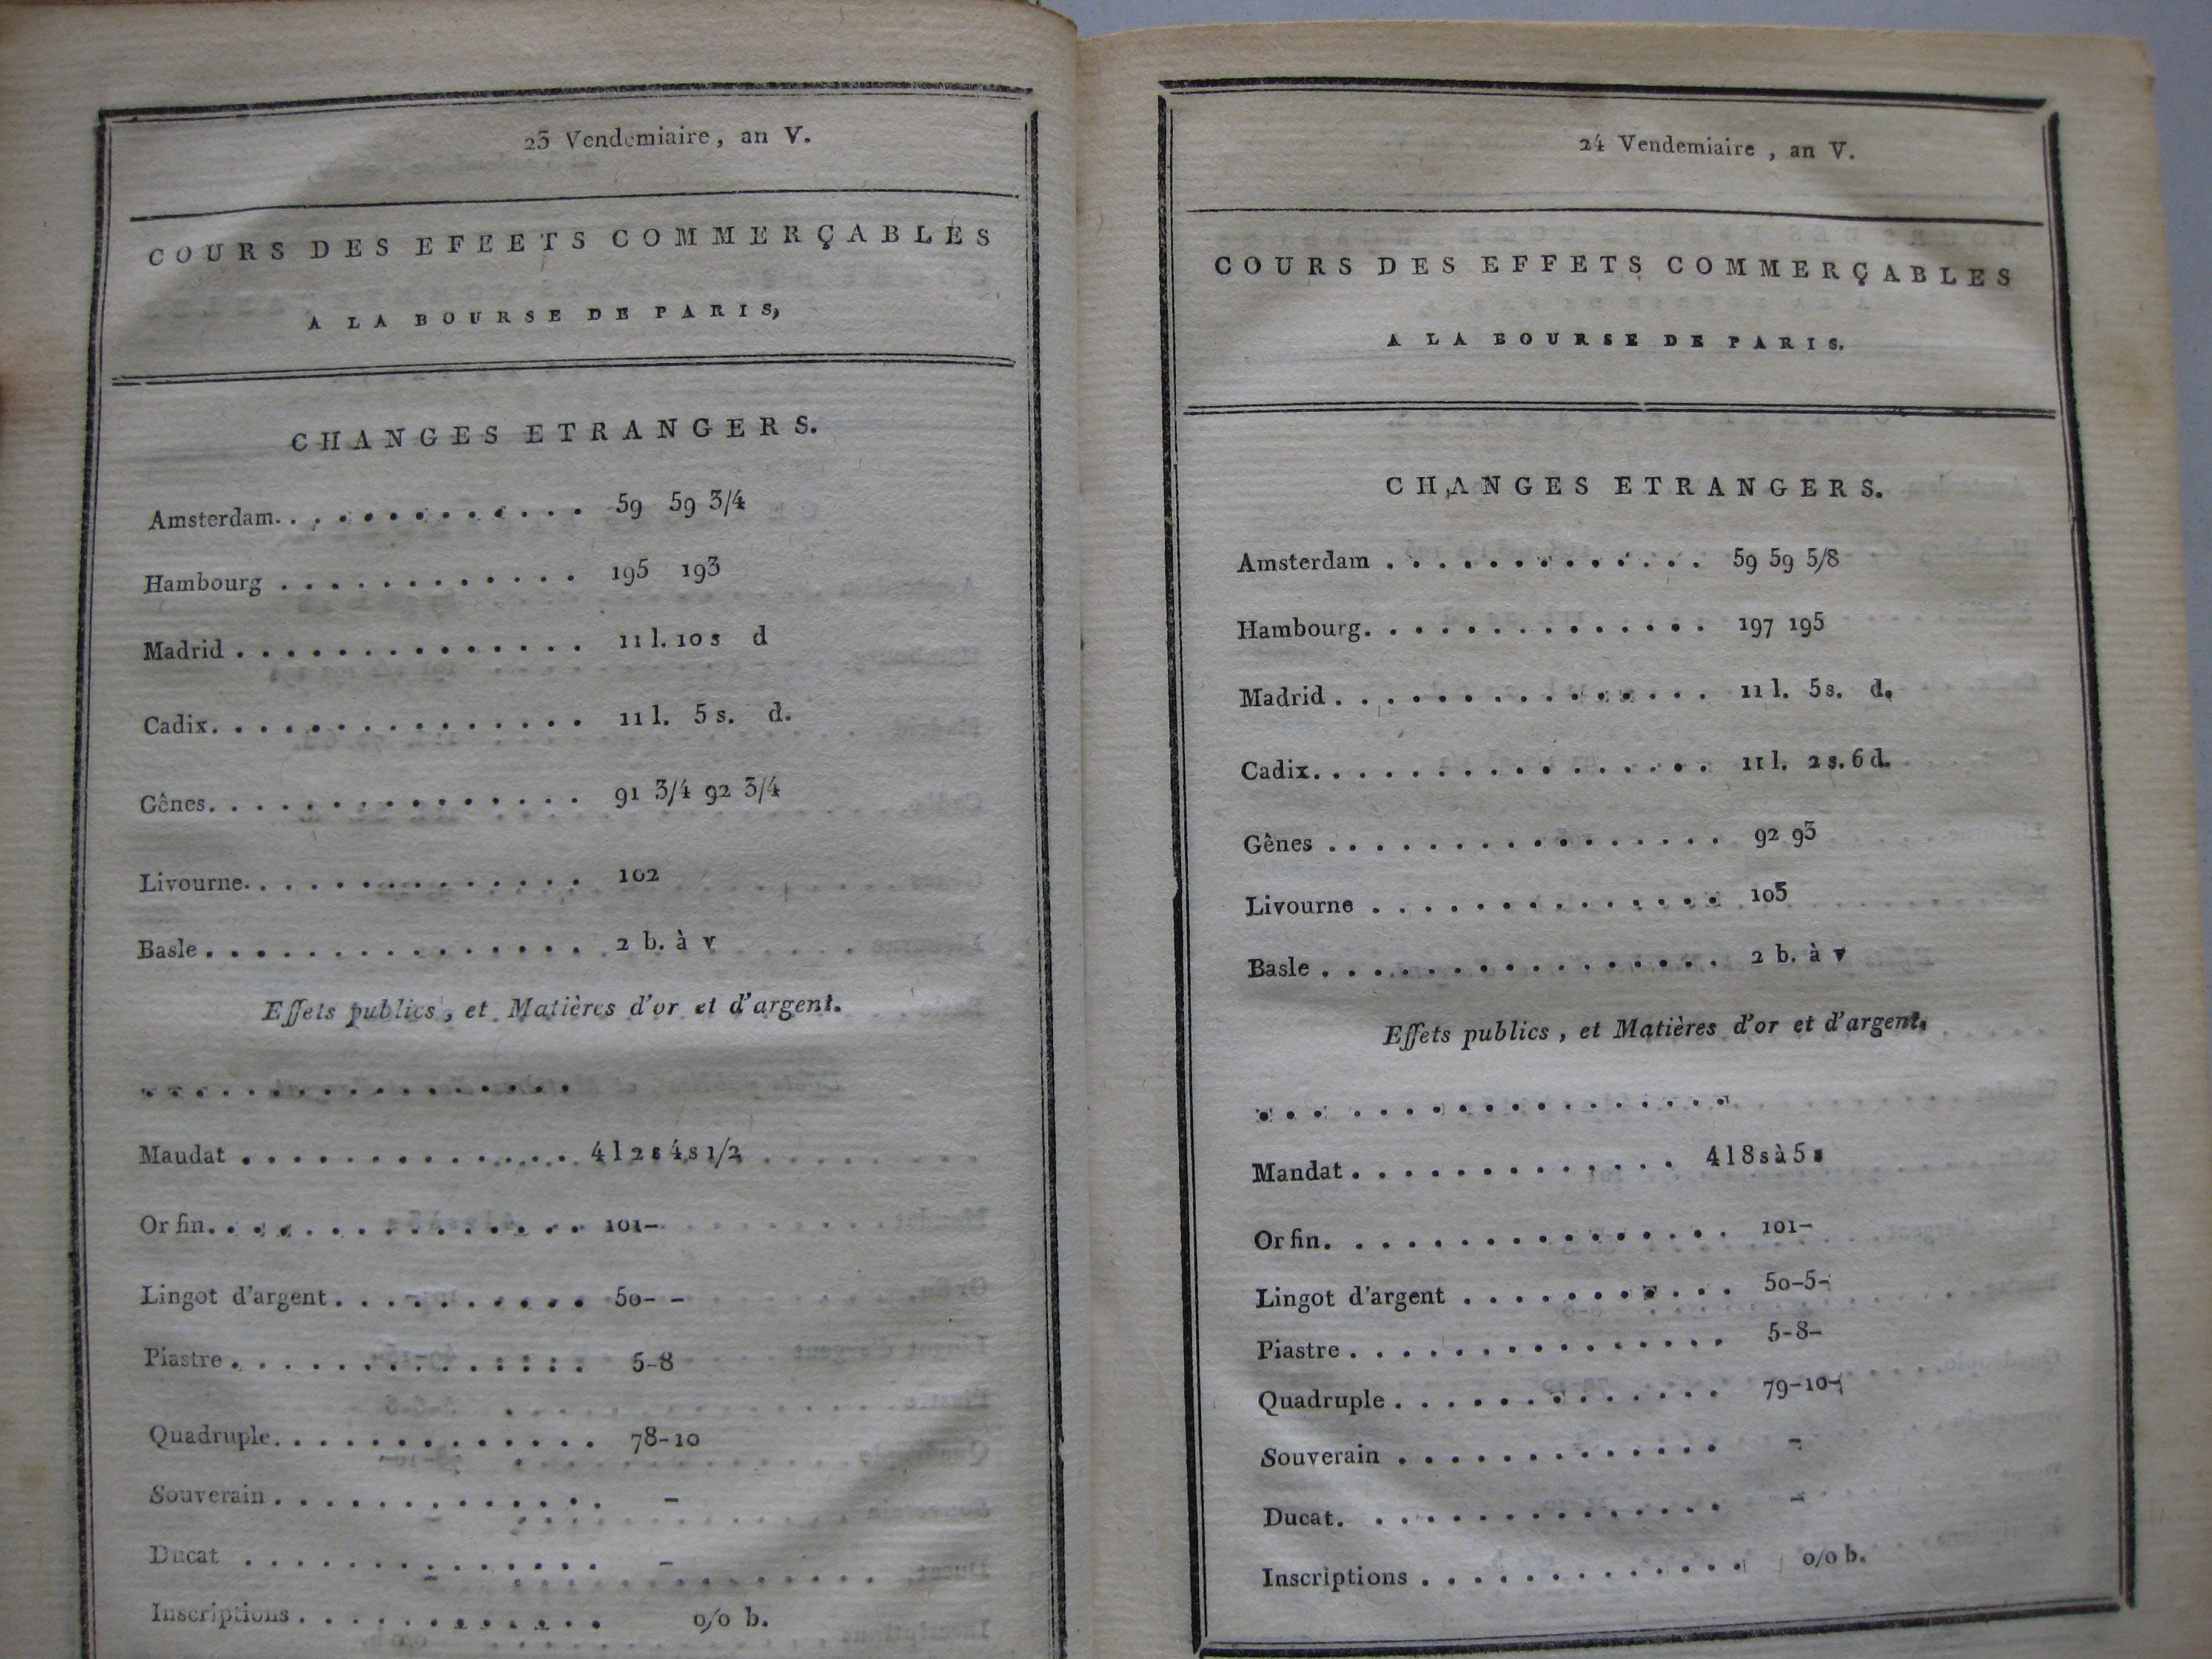 23 Vendemiaire, an V.
COURS DES EFEETS COMMERÇABLES
A LA BOURSE DE PARIS,
CHANGES ETRANGERS.
Amsterdam. . . . . . . . . . . . . 59 59 3/4
Hambourg . . . . . . . . . . . . 195 193
Madrid . . . . . . . . . . . . . . 11 l. 10 s d
Cadix. . . . . . . . . . . . . . . 11 l. 5 s. d.
Gênes. . . . . . . . . . . . . . . 91 3/4 92 3/4
Livourne. . . . . . . . . . . . . . 102
Basle . . . . . . . . . . . . . . . 2 b. à v
Effets publics, et Matières d'or et d'argent.
. . . . . . . . . . . . . . . . .
Maudat . . . . . . . . . . . . . 4 l 2 s 4 s 1/2
Or fin. . . . . . . . . . . . . . . 101-
Lingot d'argent . . . . . . . . . . 50- -
Piastre . . . . . . . . . . . . . . 5-8
Quadruple. . . . . . . . . . . . . 78-10
Souverain . . . . . . . . . . . . . -
Ducat . . . . . . . . . . . . . . -
Inscriptions . . . . . . . . . . . . 0/0 b.
24 Vendemiaire, an V.
COURS DES EFFETS COMMERÇABLES
A LA BOURSE DE PARIS.
CHANGES ETRANGERS.
Amsterdam . . . . . . . . . . . . . 59 59 5/8
Hambourg. . . . . . . . . . . . . . 197 195
Madrid . . . . . . . . . . . . . . . 11 l. 5 s. d.
Cadix. . . . . . . . . . . . . . . . 11 l. 2 s. 6 d.
Gênes . . . . . . . . . . . . . . . . 92 93
Livourne . . . . . . . . . . . . . . 103
Basle . . . . . . . . . . . . . . . . 2 b. à v
Effets publics, et Matières d'or et d'argent.
. . . . . . . . . . . . . . . . . .
Mandat . . . . . . . . . . . . . 4 l 8 s à 5 s
Or fin. . . . . . . . . . . . . . . . 101-
Lingot d'argent . . . . . . . . . . . 50-5-
Piastre . . . . . . . . . . . . . . . 5-8-
Quadruple . . . . . . . . . . . . . 79-10-
Souverain . . . . . . . . . . . . . -
Ducat. . . . . . . . . . . . . . . -
Inscriptions . . . . . . . . . . . . . 0/0 b.